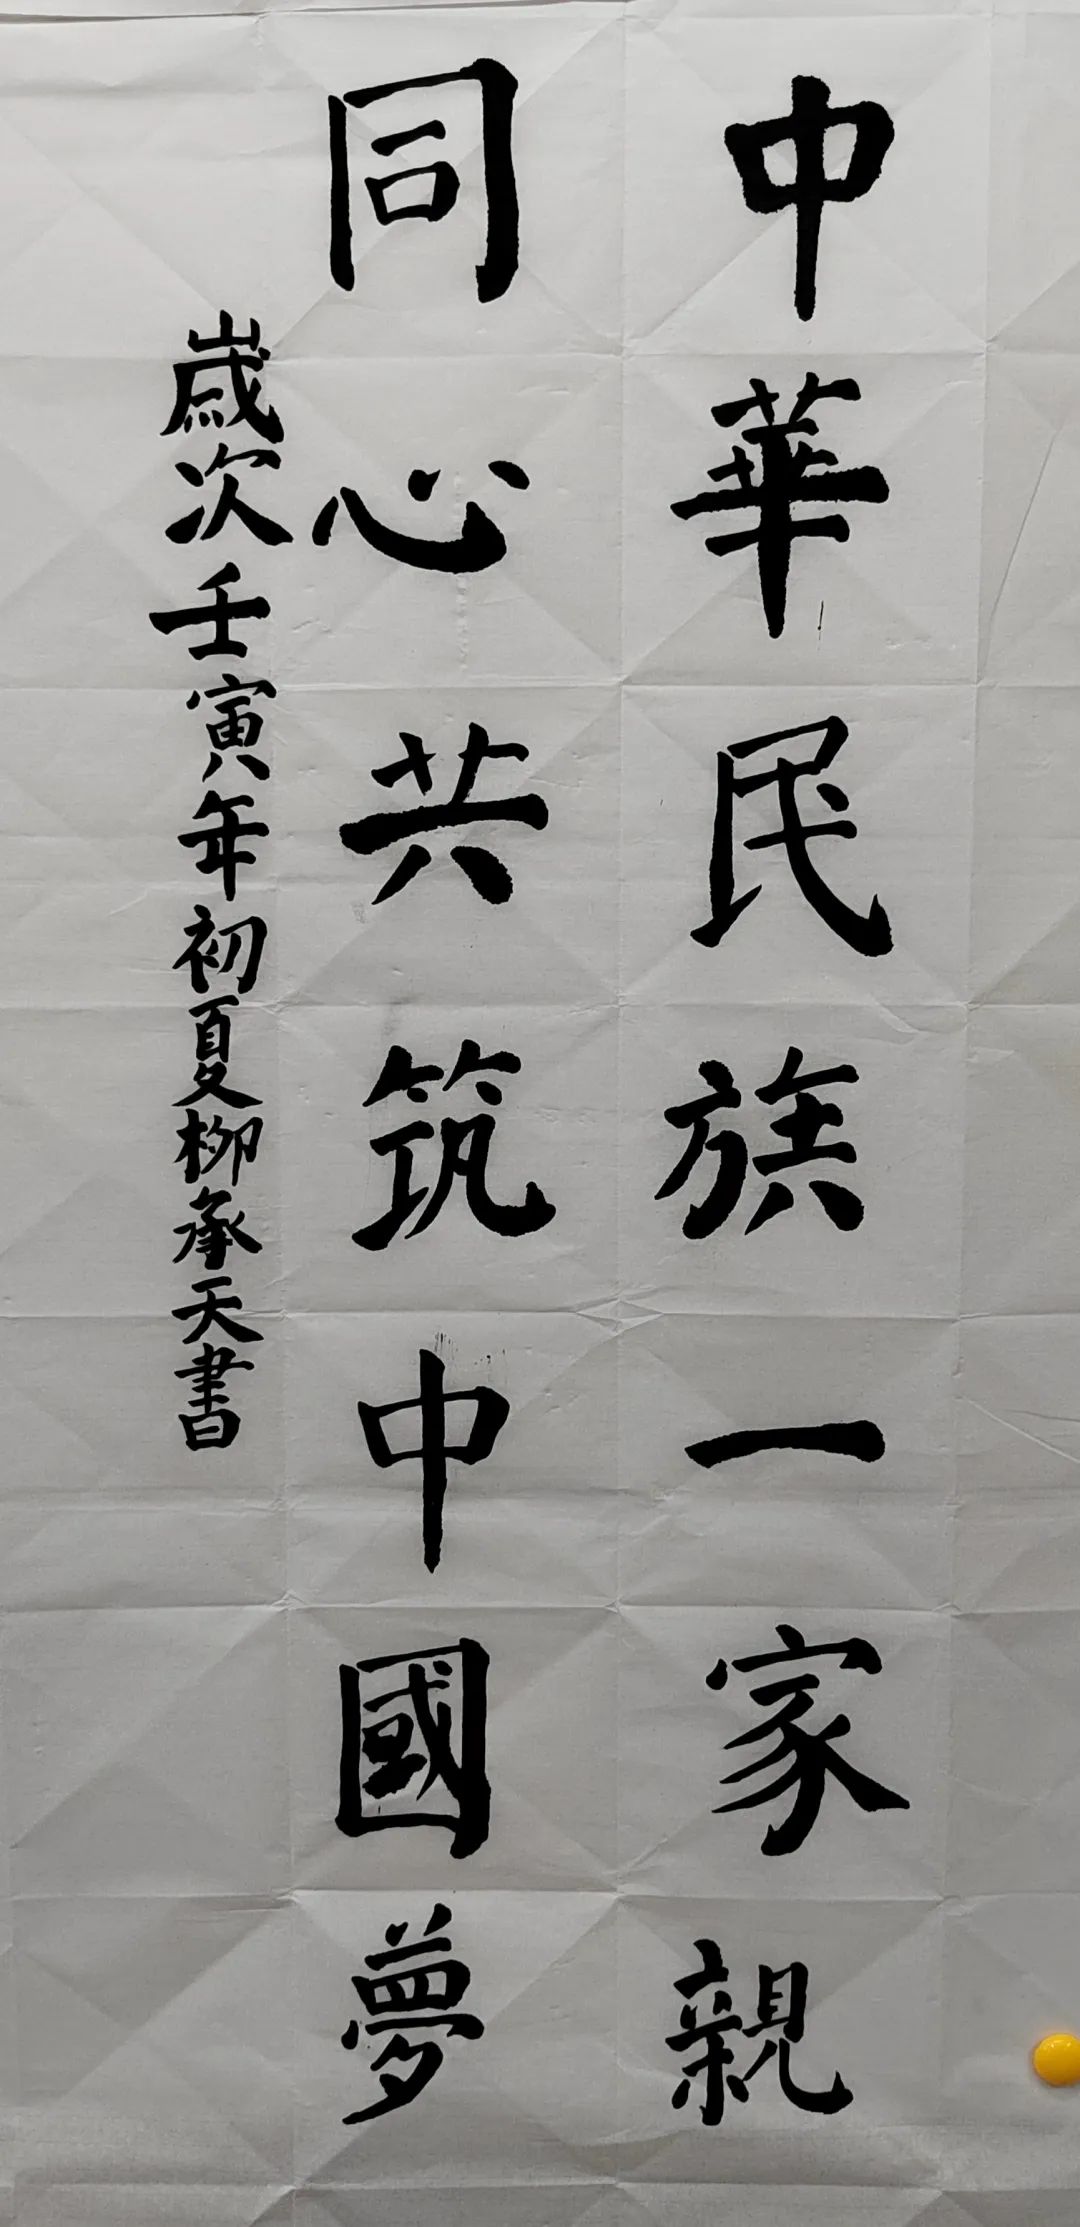 中華民族一家親
同心共筑中國夢
歲次壬寅年初夏柳承天書